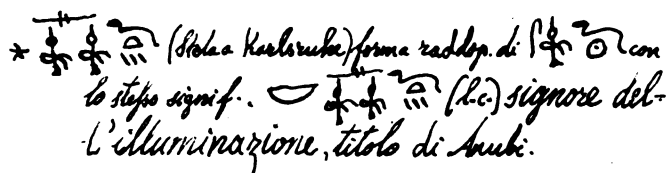 * (Stela a Karlsruhe) forma raddop. di con
lo stesso signif.. (l.c.) signore del-
l'illuminazione, titolo di Anubi.